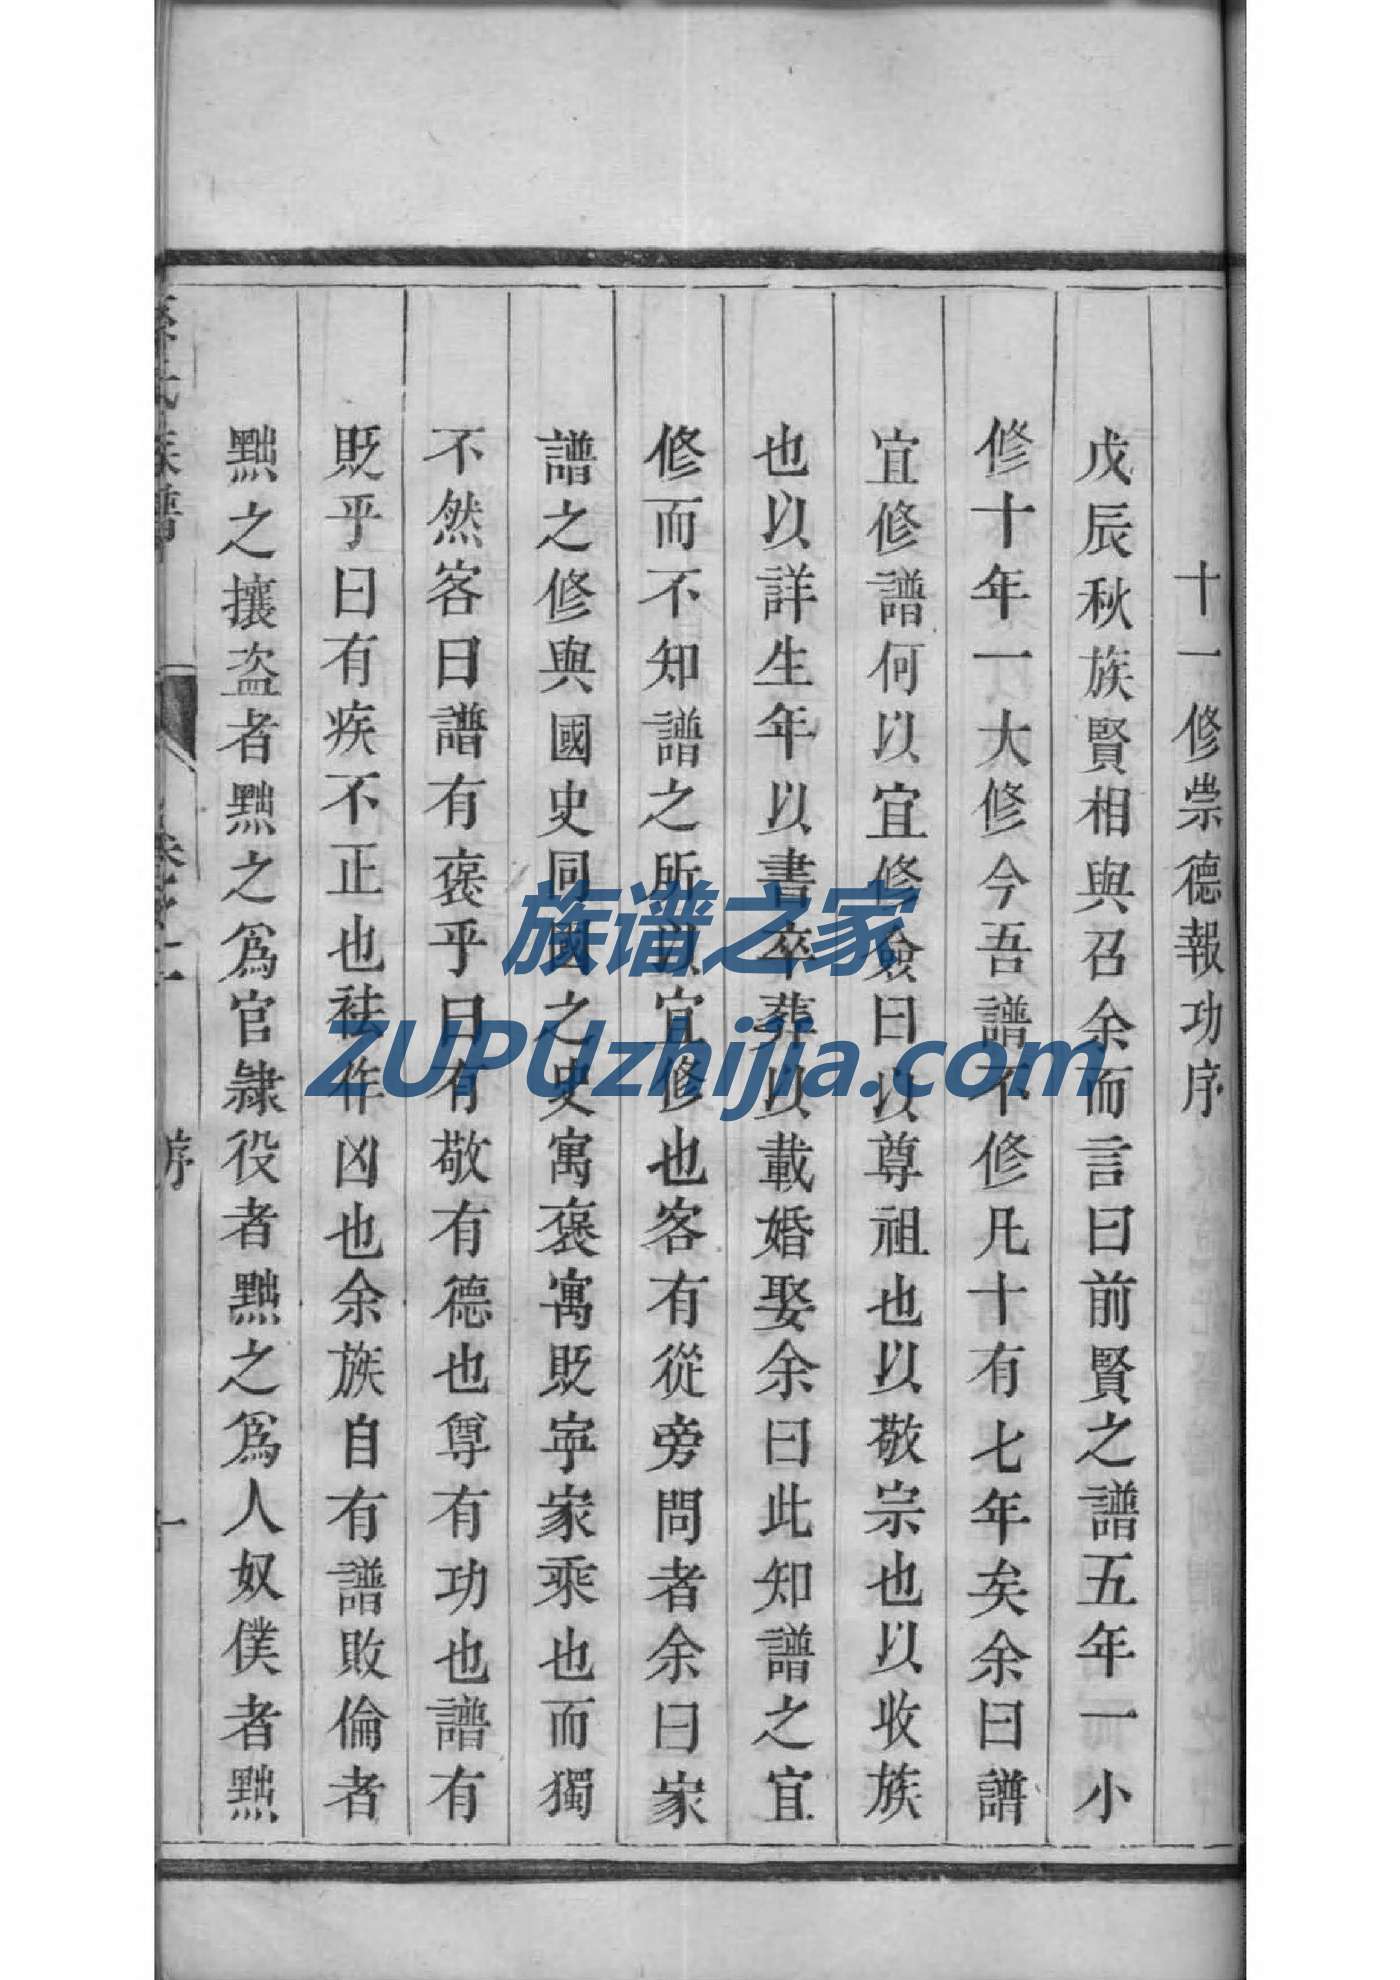 十一修崇德報功序
戊辰秋族賢相與召余而言曰前賢之譜五年一小
修十年一大修今吾譜不修凡十有七年矣余曰譜
宜修譜何以宜修僉曰以尊祖也以敬宗也以收族
也以詳生年以書卒葬以載婚娶余曰此知譜之宜
修而不知譜之所以宜修也客有從旁問者余曰家
譜之修與國史同國之史寓褒寓貶寕家乘也而獨
不然客曰譜有褒乎曰有敬有德也尊有功也譜有
貶乎曰有疾不正也祛作凶也余族自有譜敗倫者
黜之攘盗者黜之為官隸役者黜之為人奴僕者黜
氏族譜
序
族谱之家
ZUPUzhijia.com